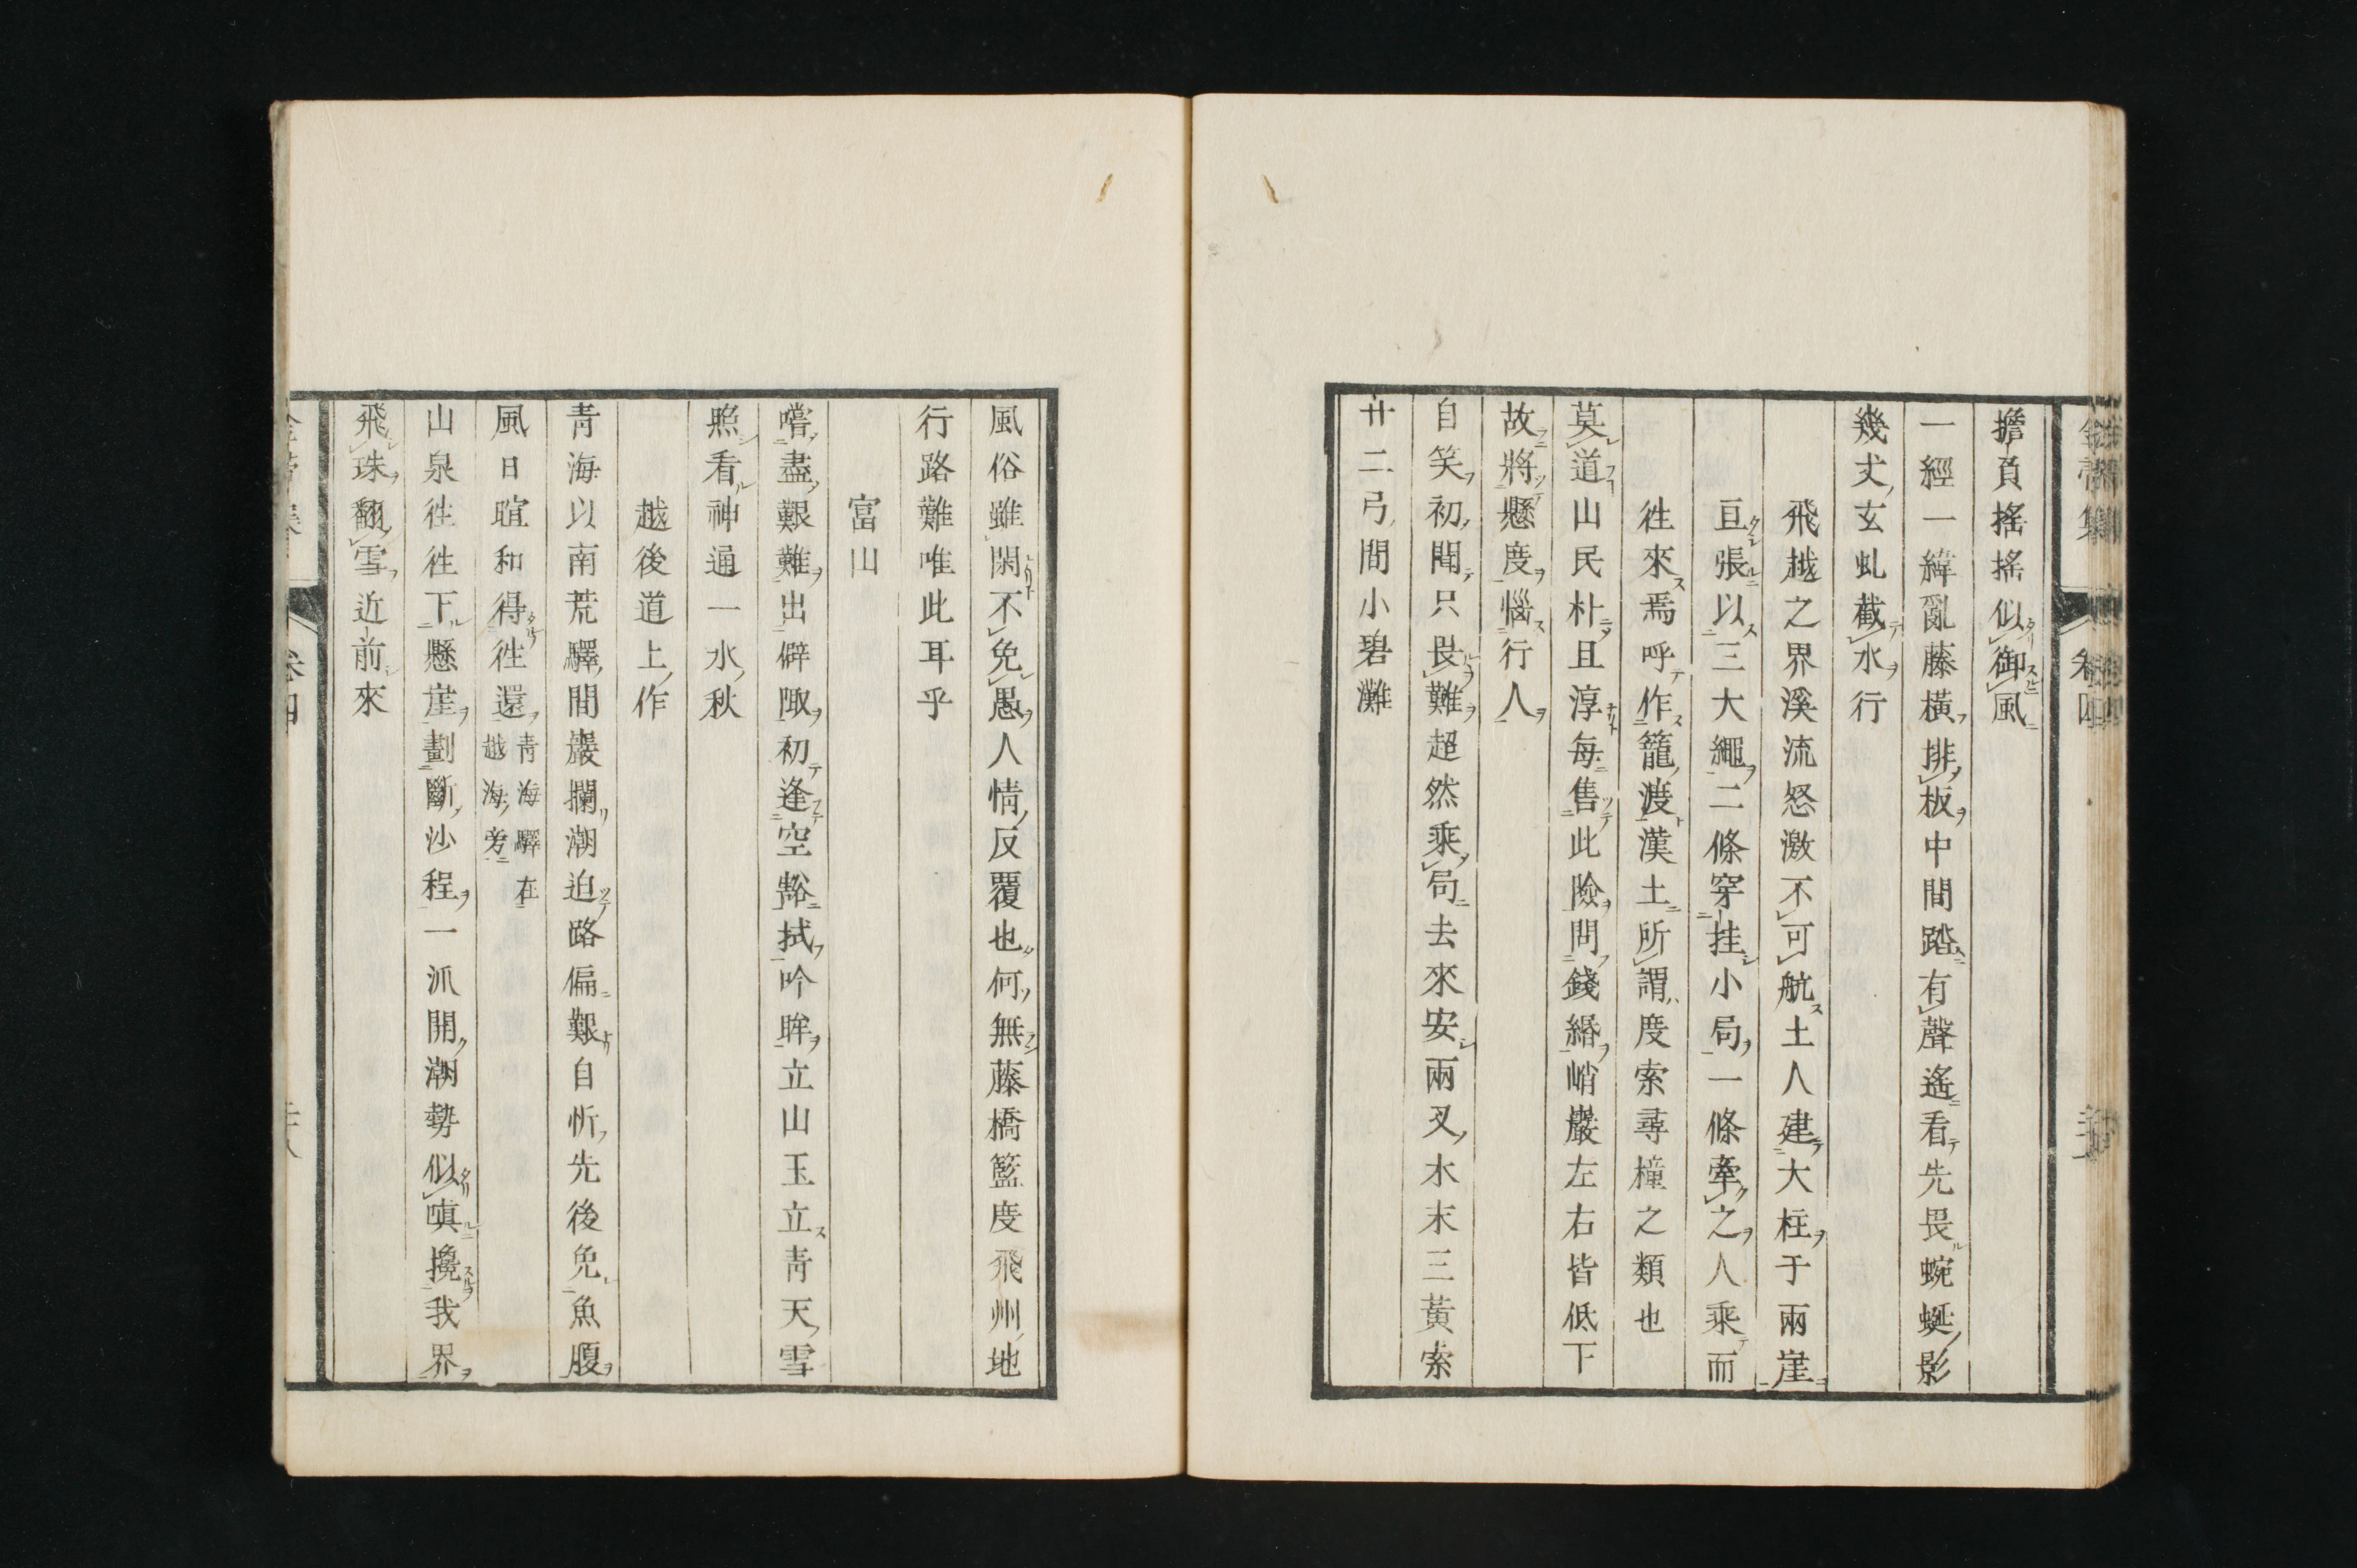 擔負搖搖似御風
一經一緯亂藤橫排板中間踏有聲遙看先畏蜿蜒影
幾丈玄虬截水行
飛越之界溪流怒激不可航土人建大柱于兩崖
亘張以三大繩二條穿挂小局一條牽之人乘而
徃來焉呼作籠渡漢土所謂度索尋橦之類也
莫道山民朴且淳每售此險問錢緡峭巖左右皆低下
故將懸度惱行人
自笑初聞只畏難超然乘局去來安兩叉木末三黃索
廿二弓間小碧灘
風俗雖閑不免愚人情反覆也何無藤橋籃度飛州地
行路難唯此耳乎
富山
嚐盡艱難出僻陬初逢空豁拭吟眸立山玉立青天雪
照看神通一水秋
越後道上作
青海以南荒驛間巖攔潮迫路偏艱自忻先後免魚腹
風日暄和得徃還
青海驛在
越海旁
山泉徃徃下懸崖劃斷沙程一派開潮勢似嗔攙我界
飛珠翻雪近前來
卷四